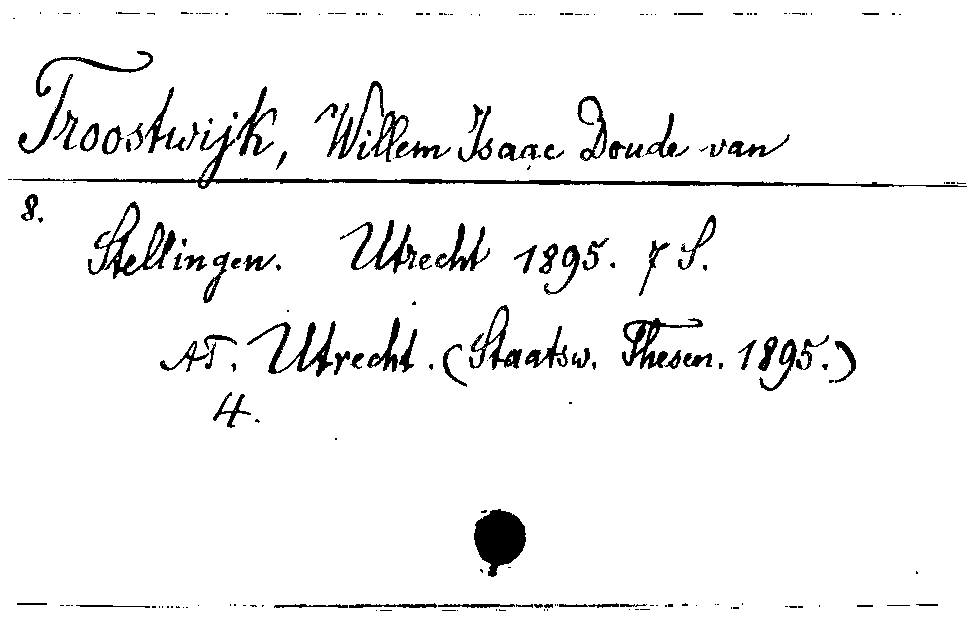 Troostwijk, Willem Isaac Doude van
8.
Stellingen. Utrecht 1895. 7 S.
AT. Utrecht. (Staatsw. Thesen. 1895.)
4.